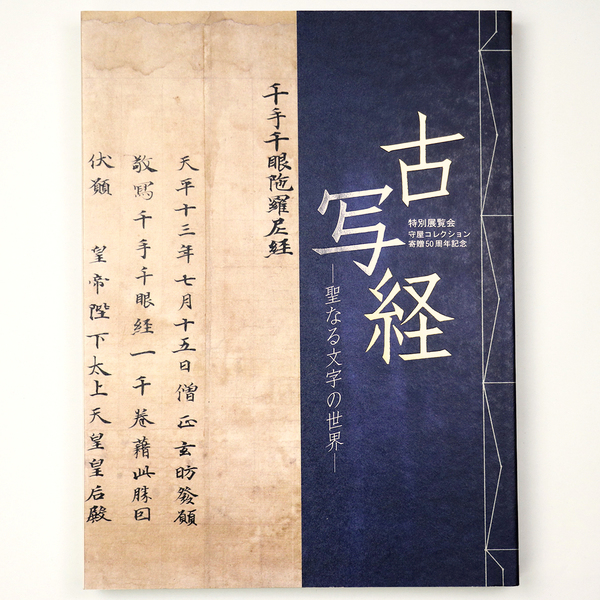 古写経
特別展覧会
守屋コレクション
寄贈50周年記念
―聖なる文字の世界―
千手千眼陁羅尼経
天平十三年七月十五日僧正玄昉發願
敬寫千手千眼経一千卷藉此勝因
伏願 皇帝陛下太上天皇皇后殿